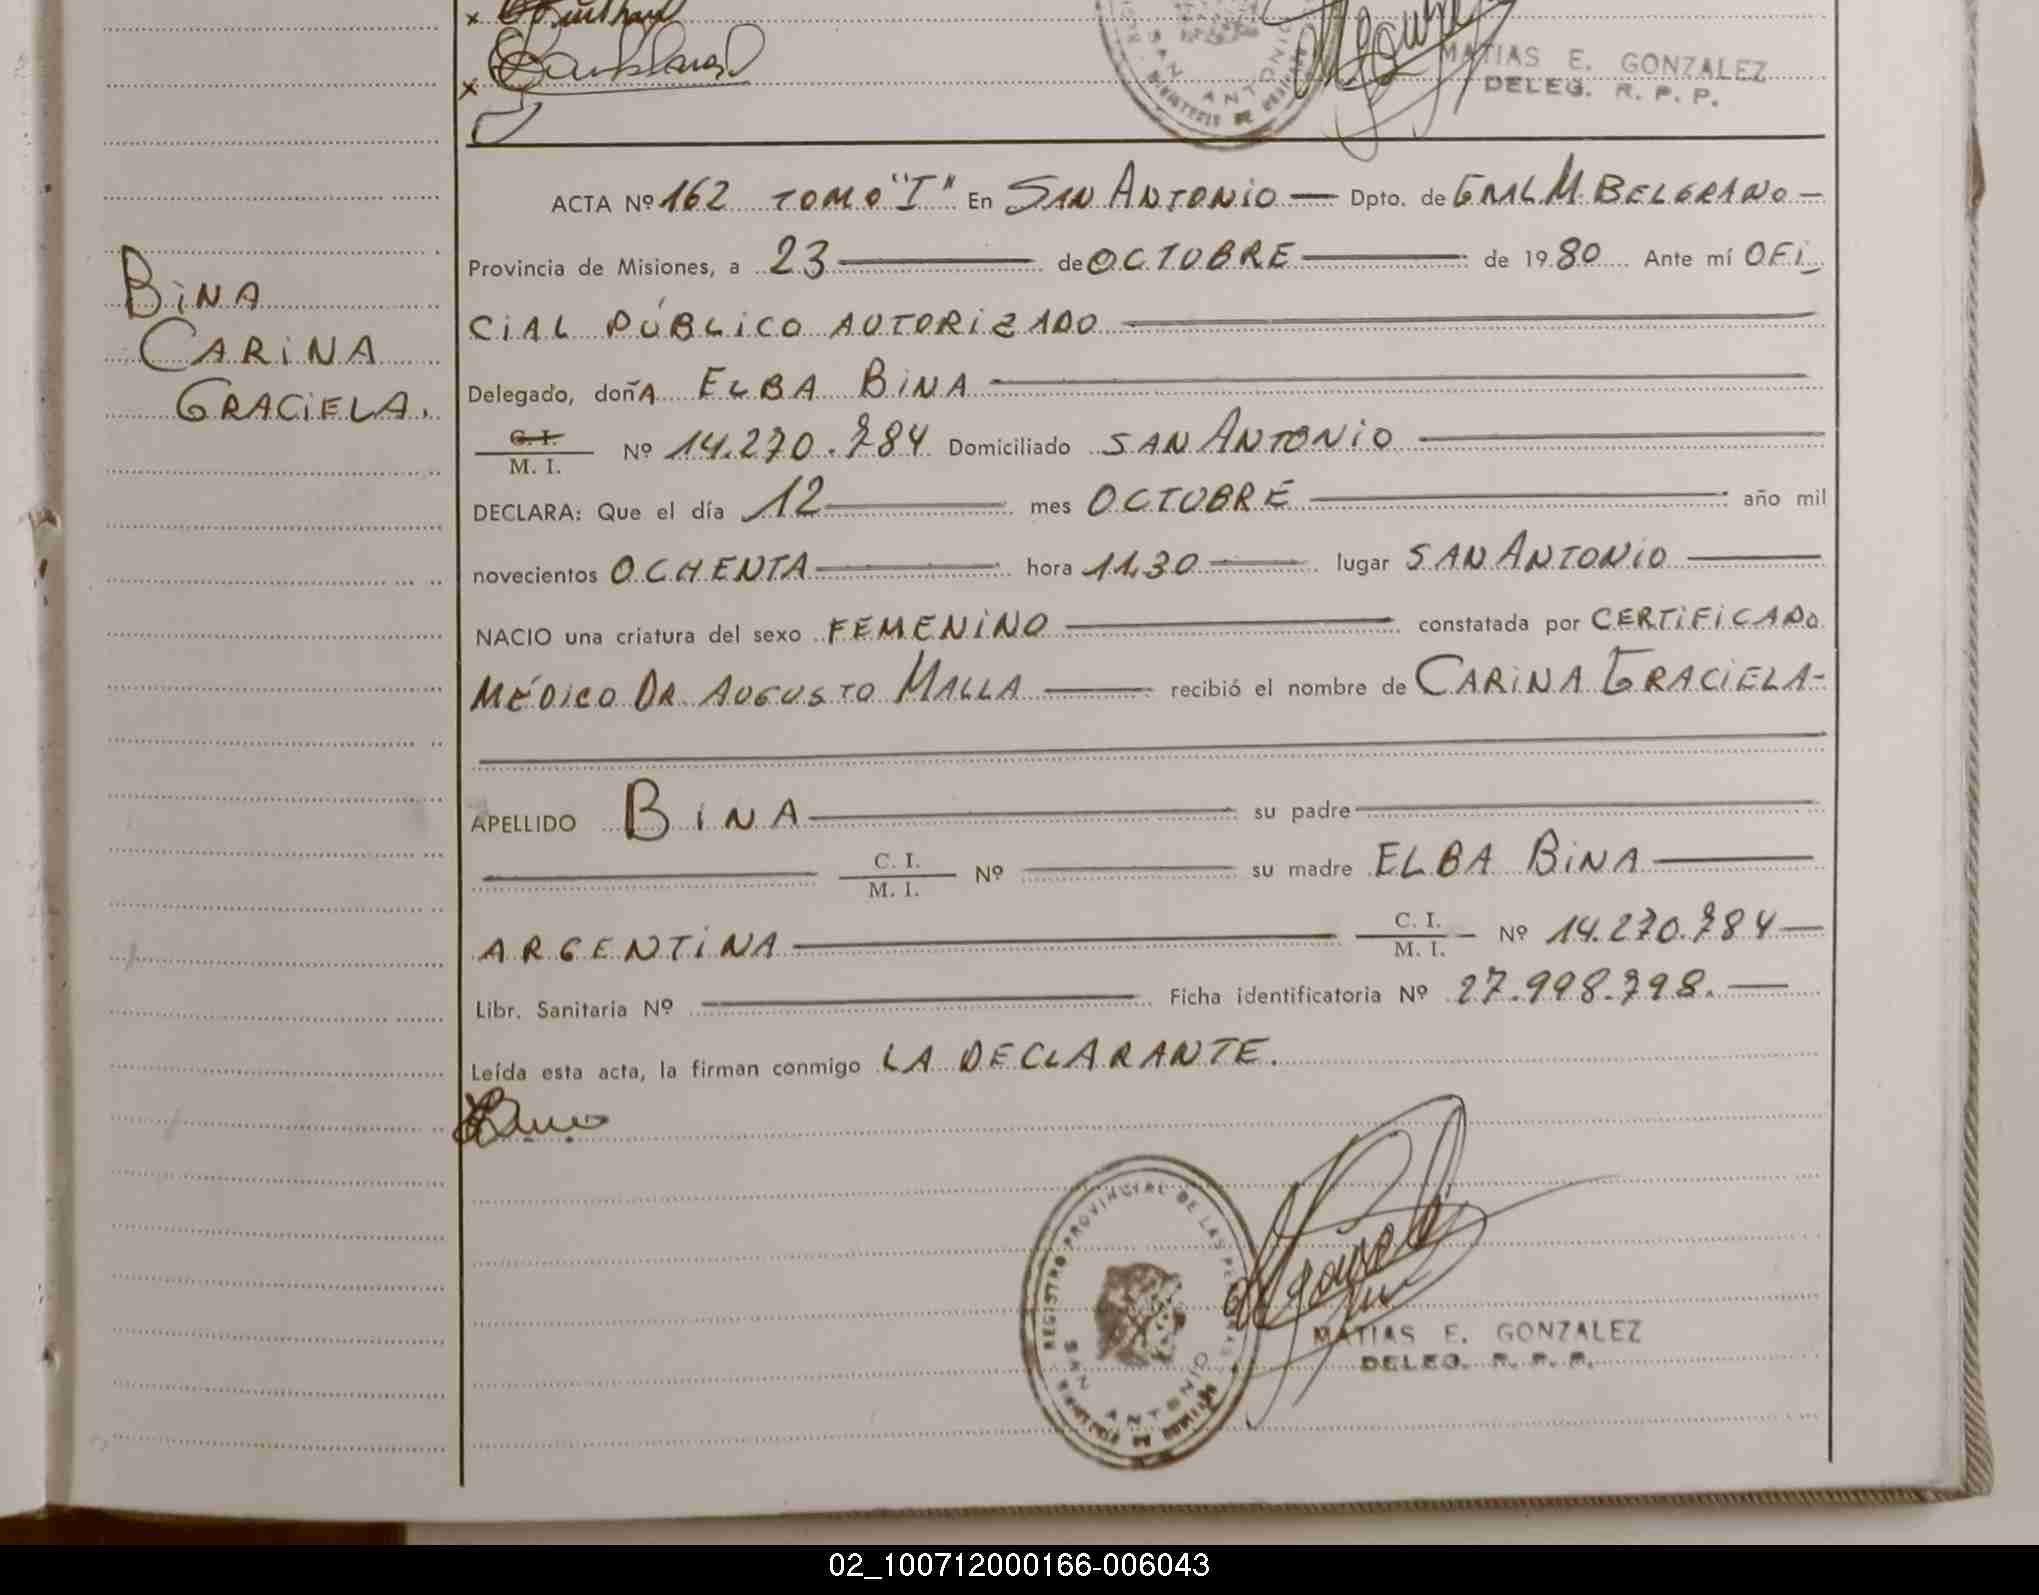 MATIAS E. GONZALEZ
DELEG. R. P. P.
BINA
CARINA
GRACIELA.
ACTA Nº 162 TOMO "I" En SAN ANTONIO — Dpto. de GRAL M. BELGRANO —
Provincia de Misiones, a 23 — de OCTUBRE — de 1980 Ante mí OFI
CIAL PÚBLICO AUTORIZADO —
Delegado, doñA ELBA BINA —
C. I.
M. I. Nº 14.270.784 Domiciliado SAN ANTONIO —
DECLARA: Que el día 12 — mes OCTUBRE — año mil
novecientos OCHENTA — hora 11,30 — lugar SAN ANTONIO —
NACIO una criatura del sexo FEMENINO — constatada por CERTIFICADO
MÉDICO DR. AUGUSTO MALLA — recibió el nombre de CARINA GRACIELA-
APELLIDO BINA — su padre —
— C. I.
M. I. Nº — su madre ELBA BINA —
ARGENTINA — C. I.
M. I. Nº 14.270.784 —
Libr. Sanitaria Nº — Ficha identificatoria Nº 27.998.798. —
Leída esta acta, la firman conmigo LA DECLARANTE.
REGISTRO PROVINCIAL DE LAS PERSONAS
SAN ANTONIO
MATIAS E. GONZALEZ
DELEG. R. P. P.
02_100712000166-006043